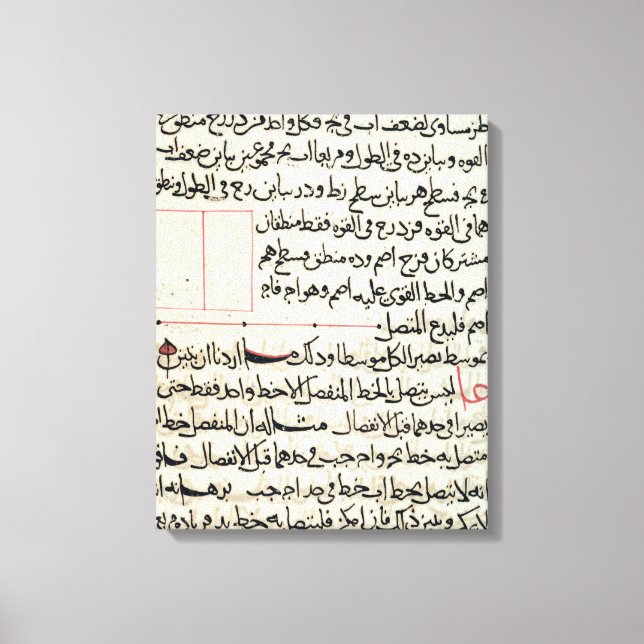 مساوى لضعف اب فى بج فكل واحد من د ر رح منطق
القوه ومباين ده فى الطول ومربعا اب بج مجموعين يباين ضعف اب
فى بج فسطح هر يباين سطح رط و در يباين رح فى الطول ومنطق
هما فى القوه فزد رح فى القوه فقط منطقان
مشتركان فزح اصم وده منطق فسطح هح
اصم والخط القوى عليه اصم وهو اج فاج
اصم فليدع المتصل
بموسط يصير الكل موسطا وذلك ما اردنا ان نبين
عا ليس يتصل بالخط المنفصل الا خط واحد فقط حتى
يصير فى حدهما قبل الانفصال مثاله ان المنفصل خط اب
متصل به خط بج و اج جب فى حدهما قبل الانفصال فاقول
انه لا يتصل بخط اب خط فى حد اج جب برهانه ان
لا يكن وبين ذلك فان امكن فليتصل به خط بد